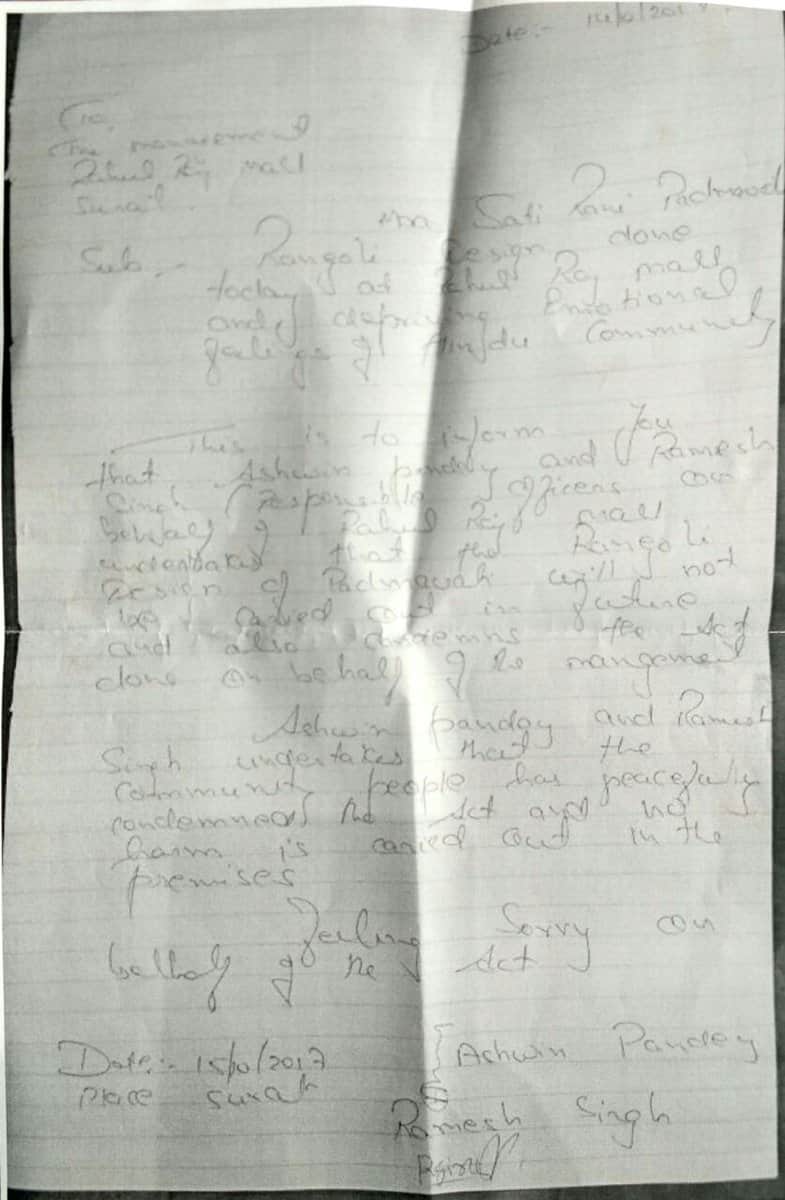 Date:- 14/10/2017
To,
The management
Rahul Raj Mall
Surat.
on Sati Rani Padmavati
Sub:- Rangoli Design done
today's at Rahul Raj mall
and depriving Emotional
feelings of Hindu Community
This is to inform You
that Ashwin pandey and Ramesh
Singh (responsible officers on
behalf of Rahul Raj mall
undertakes that the Rangoli
Design of Padmavati will not
be caried out in future
and also condemns the Act
done on behalf of the mangement
Ashwin pandey and Ramesh
Singh undertakes that the
Community people has peacefully
condemned the Act and no
harm is caried out in the
premises
Feeling Sorry on
behalf of the Act
Date:- 15/10/2017
Place Surat
Ashwin Pandey
Ramesh Singh